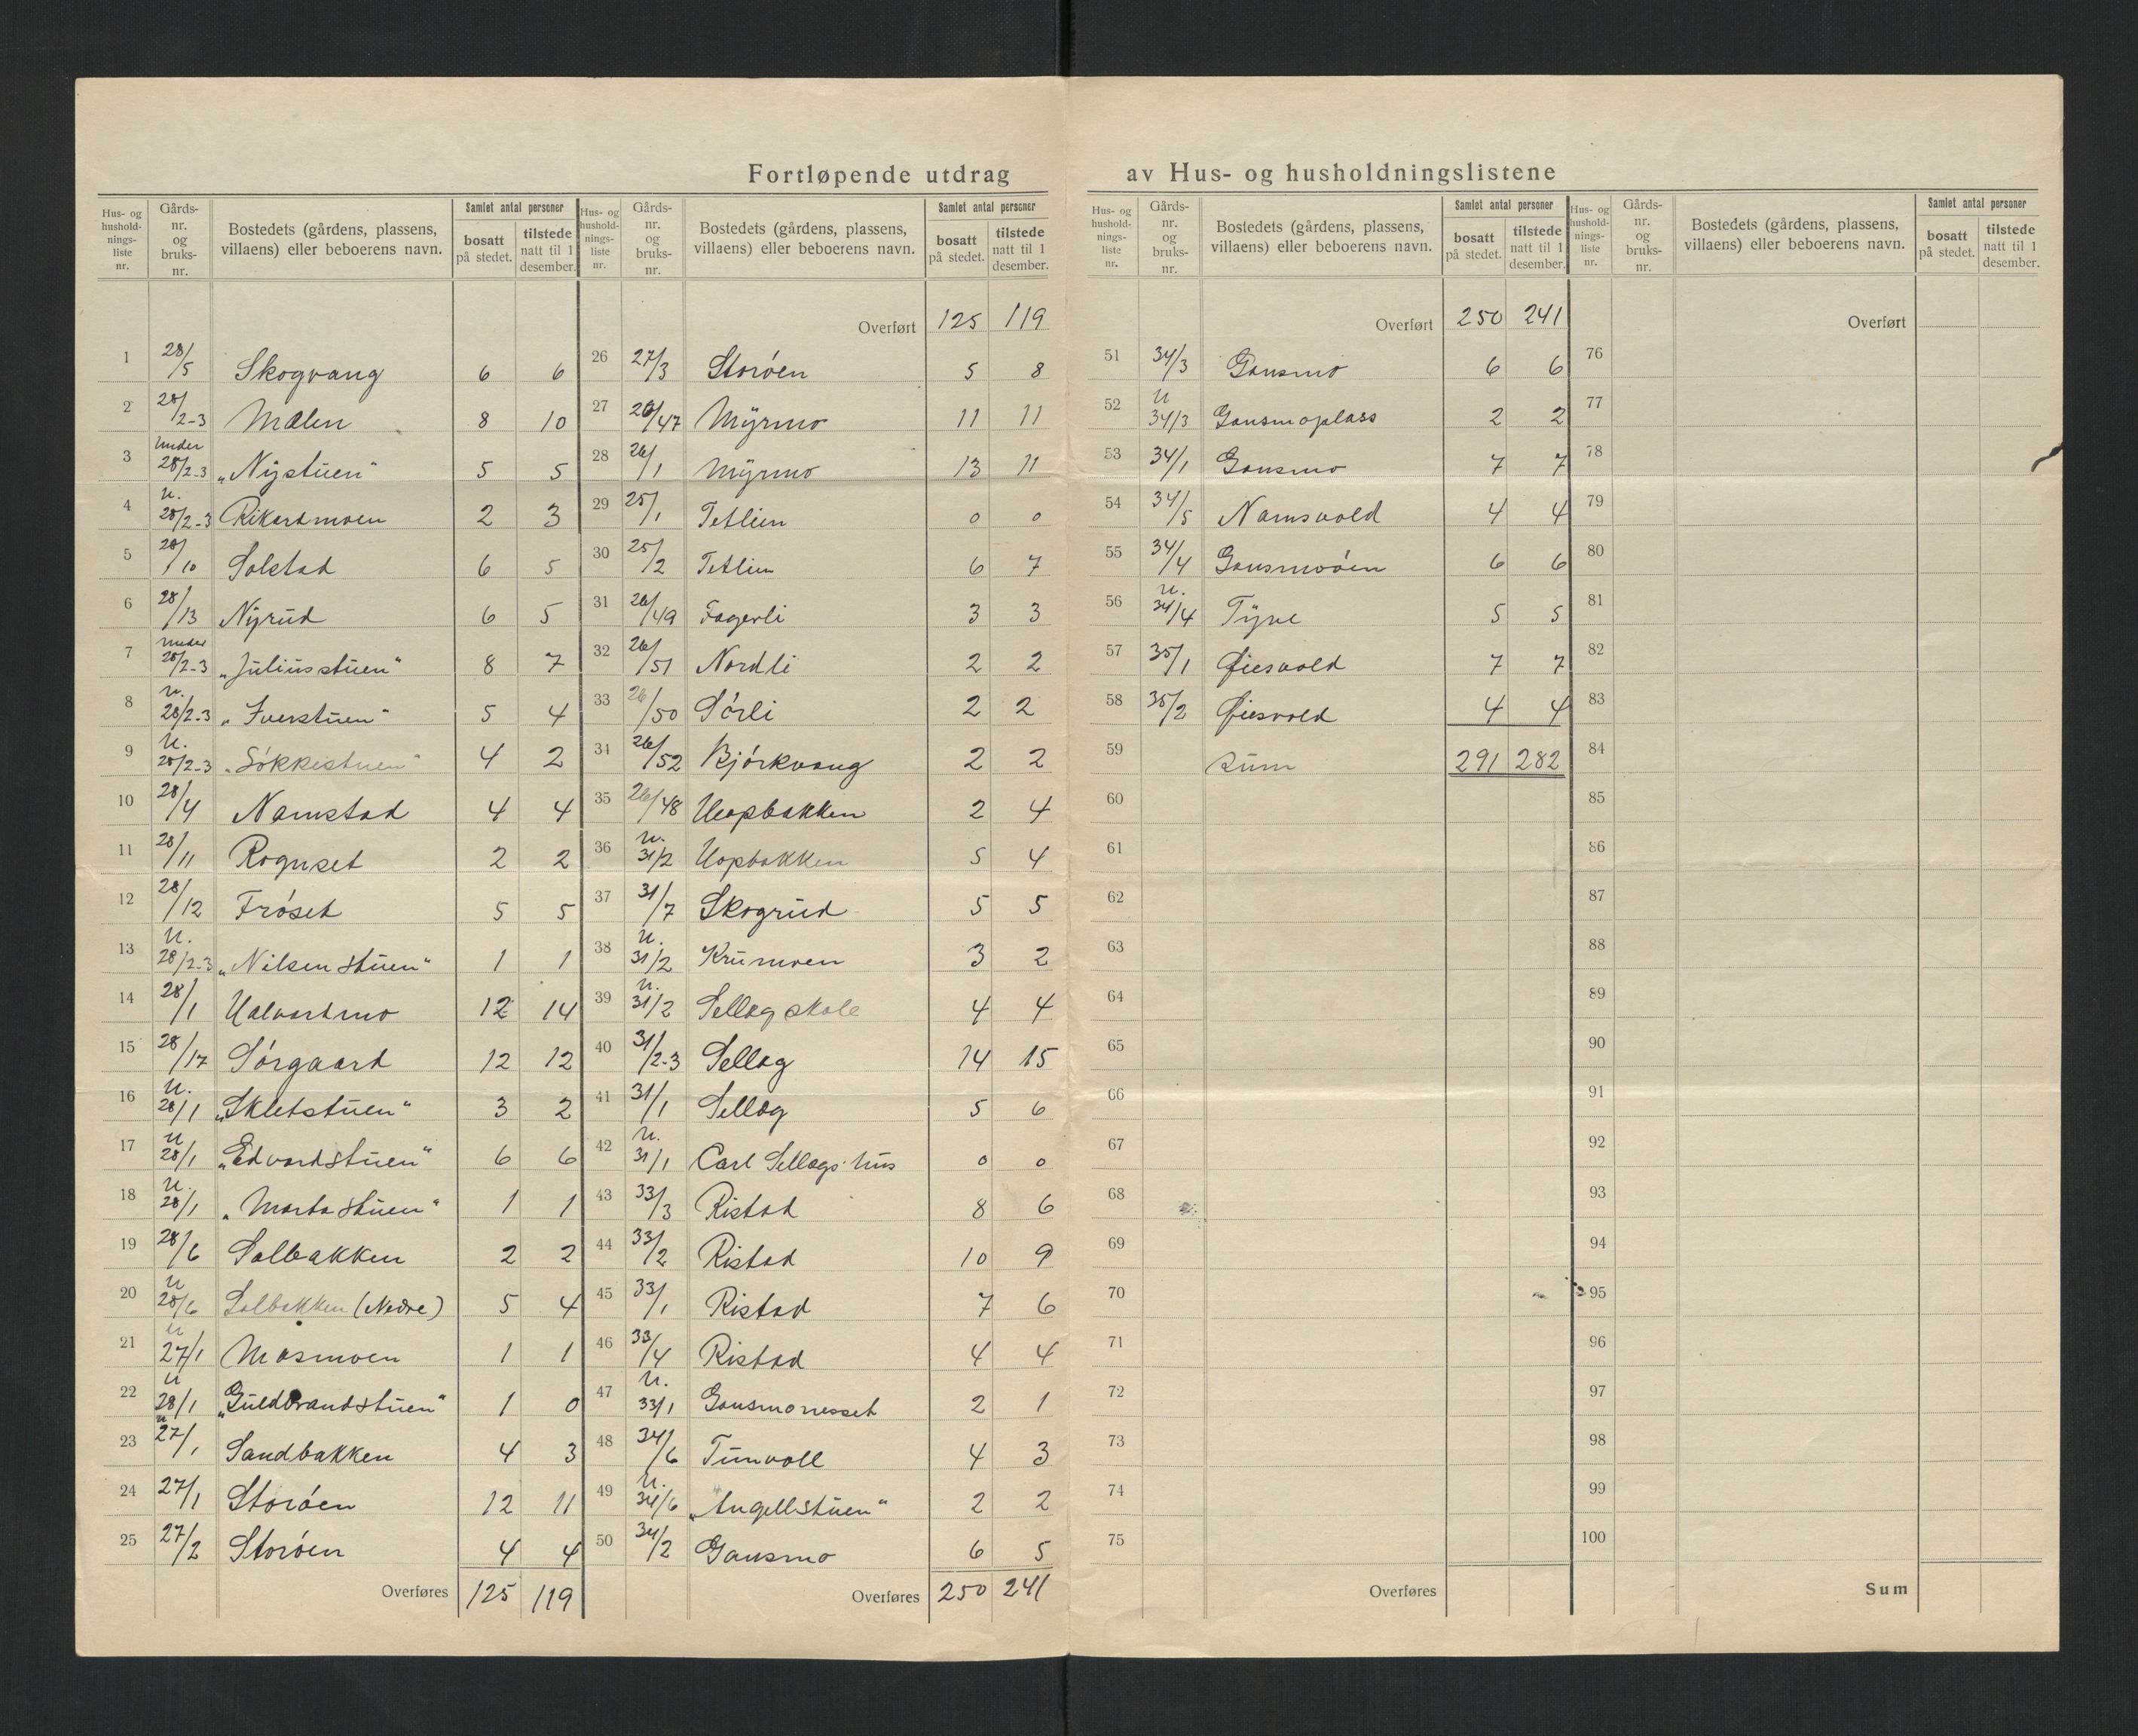 Fortløpende utdrag av Hus- og husholdningslistene
Hus- og hushold-nings-liste nr. Gårds-nr. og bruks-nr. Bostedets (gårdens, plassens, villaens) eller beboerens navn. Samlet antal personer bosatt på stedet. tilstede natt til 1 desember.
1 28/5 Skogvang 6 6
2 28/2-3 Mælen 8 10
3 Under 28/2-3 „Nystuen" 5 5
4 U. 28/2-3 Rikartmoen 2 3
5 28/10 Solstad 6 5
6 28/13 Nyrud 6 5
7 Under 28/2-3 „Juliusstuen" 8 7
8 U. 28/2-3 „Iverstuen" 5 4
9 U. 28/2-3 „Sökkistuen" 4 2
10 28/4 Namstad 4 4
11 28/11 Rognset 2 2
12 28/12 Fróset 5 5
13 U. 28/2-3 „Nilsenstuen" 1 1
14 28/1 Halvardmo 12 14
15 28/17 Sórgaard 12 12
16 U. 28/1 „Skletstuen" 3 2
17 U 28/1 „Edvardstuen" 6 6
18 U. 28/1 „Martastuen" 1 1
19 28/6 Solbakken 2 2
20 U 28/6 Solbakken (Nedre) 5 4
21 U 27/1 Mosmoen 1 1
22 U 28/1 „Guldbrandstuen" 1 0
23 U 27/1 Sandbakken 4 3
24 27/1 Storóen 12 11
25 27/2 Storóen 4 4
Overføres 125 119
Hus- og hushold-nings-liste nr. Gårds-nr. og bruks-nr. Bostedets (gårdens, plassens, villaens) eller beboerens navn. Samlet antal personer bosatt på stedet. tilstede natt til 1 desember.
Overført 125 119
26 27/3 Storóen 5 8
27 26/47 Myrmo 11 11
28 26/1 Myrmo 13 11
29 25/1 Tetlien 0 0
30 25/2 Tetlien 6 7
31 26/49 Fagerli 3 3
32 26/51 Nordli 2 2
33 26/50 Sórli 2 2
34 26/52 Bjórkvang 2 2
35 26/48 Hopbakken 2 4
36 U. 31/2 Hopbakken 5 4
37 31/7 Skogrud 5 5
38 U. 31/2 Krumoen 3 2
39 U. 31/2 Sellæg skole 4 4
40 31/2-3 Sellæg 14 15
41 31/1 Sellæg 5 6
42 U. 31/1 Carl Sellægs hus 0 0
43 33/3 Ristad 8 6
44 33/2 Ristad 10 9
45 33/1 Ristad 7 6
46 33/4 Ristad 4 4
47 U. 33/1 Gansmonesset 2 1
48 34/6 Tunvoll 4 3
49 U. 34/6 „Angellstuen" 2 2
50 34/2 Gansmo 6 5
Overføres 250 241
Hus- og hushold-nings-liste nr. Gårds-nr. og bruks-nr. Bostedets (gårdens, plassens, villaens) eller beboerens navn. Samlet antal personer bosatt på stedet. tilstede natt til 1 desember.
Overført 250 241
51 34/3 Gansmo 6 6
52 U 34/3 Gansmoplass 2 2
53 34/1 Gansmo 7 7
54 34/5 Namsvold 4 4
55 34/4 Gansmoóen 6 6
56 U. 34/4 Tyve 5 5
57 35/1 Øiesvold 7 7
58 35/2 Øiesvold 4 4
59 Sum 291 282
60
61
62
63
64
65
66
67
68
69
70
71
72
73
74
75
Overføres
Hus- og hushold-nings-liste nr. Gårds-nr. og bruks-nr. Bostedets (gårdens, plassens, villaens) eller beboerens navn. Samlet antal personer bosatt på stedet. tilstede natt til 1 desember.
Overført
76
77
78
79
80
81
82
83
84
85
86
87
88
89
90
91
92
93
94
95
96
97
98
99
100
Sum